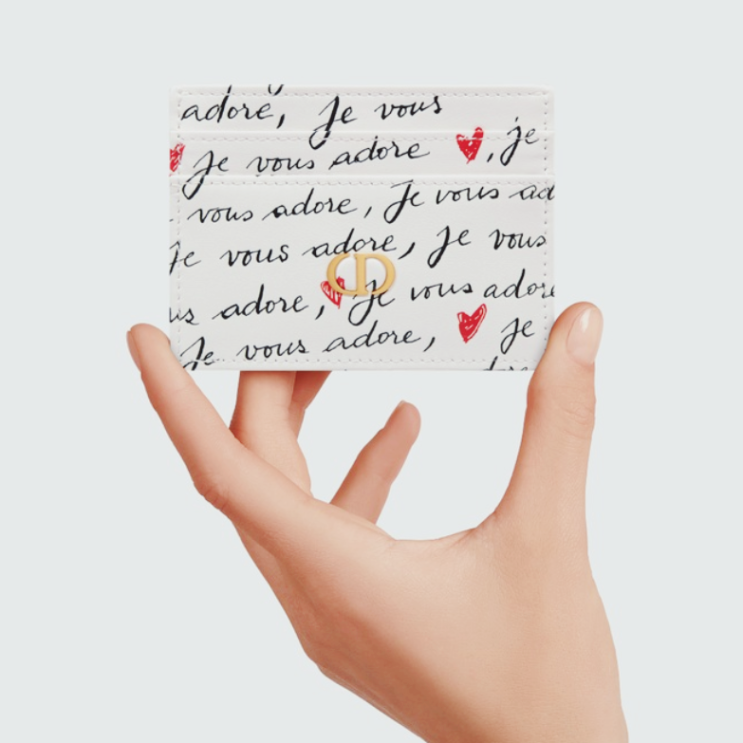 adore, Je vous
Je vous adore , je
vous adore, Je vous ad
Je vous adore, Je vous
us adore, Je vous adore
Je vous adore, Je
CD